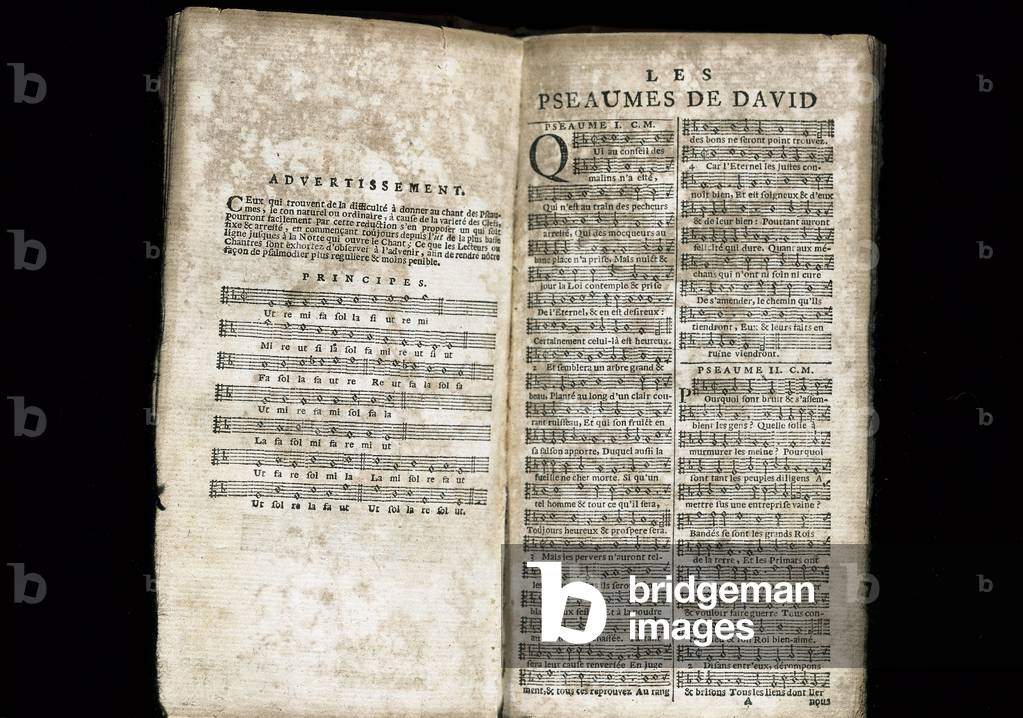 ADVERTISSEMENT.
CEux qui trouvent de la difficulté à donner au chant des Pseau-
mes, le ton naturel ou ordinaire, à cause de la varieté des Clefs,
pourront facilement par cette reduction s'en proposer un qui soit
fixe & arresté, en commençant toûjours depuis l'ut de la plus basse
ligne jusques à la Notte qui ouvre le Chant; Ce que les Lecteurs ou
Chantres sont exhortez d'observer à l'advenir, afin de rendre nôtre
façon de psalmodier plus reguliere & moins penible.
PRINCIPES.
Ut re mi fa sol la si ut re mi
Mi re ut si la sol fa mi re ut si ut
Fa sol la fa ut re Re ut fa la sol fa
Ut mi re fa mi sol fa la
La fa sol mi fa re mi ut
Ut fa re sol mi la La mi sol re fa ut
Ut sol re la fa ut Ut sol re la re sol ut.
LES
PSEAUMES DE DAVID
PSEAUME I. C.M.
QUi au conseil des
malins n'a esté,
Qui n'est au train des pecheurs
arresté, Qui des mocqueurs au
banc place n'a prise, Mais nuict &
jour la Loi contemple & prise
De l'Eternel, & en est desireux:
Certainement celui-là est heureux.
2 Et semblera un arbre grand &
beau, Planté au long d'un clair cou-
rant ruisseau, Et qui son fruict en
sa saison apporte, Duquel aussi la
fueille ne cher morte. Si qu'un
tel homme & tout ce qu'il fera,
Toûjours heureux & prospere sera.
3 Mais les pervers n'auront tel-
les ils sero
bla aux fest et à la poudre
au hassée.
sera leur cause renversée En juge
ment, & tous ces reprouvez Au rang
des bons ne seront point trouvez.
4 Car l'Eternel les justes con-
noît bien, Et est soigneux & d'eux
& de leur bien: Pourtant auront
felicité qui dure. Quant aux mé-
chans qui n'ont ni soin ni cure
De s'amender, le chemin qu'ils
tiendront, Eux & leurs faits en
ruïne viendront.
PSEAUME II. C.M.
POurquoi font bruit & s'assem-
blent les gens? Quelle folie à
murmurer les meine? Pourquoi
sont tant les peuples diligens A
mettre sus une entreprise vaine?
Bandés se sont les grands Rois
de la terre, Et les Primats ont
& vouloir faire guerre Tous con-
& son Roi bien-aimé.
2 Disans entr'eux, dérompons
& brisons Tous les liens dont lier
A nous
bridgeman
images
b
b
b
b
b
b
b
b
b
b
b
b
b